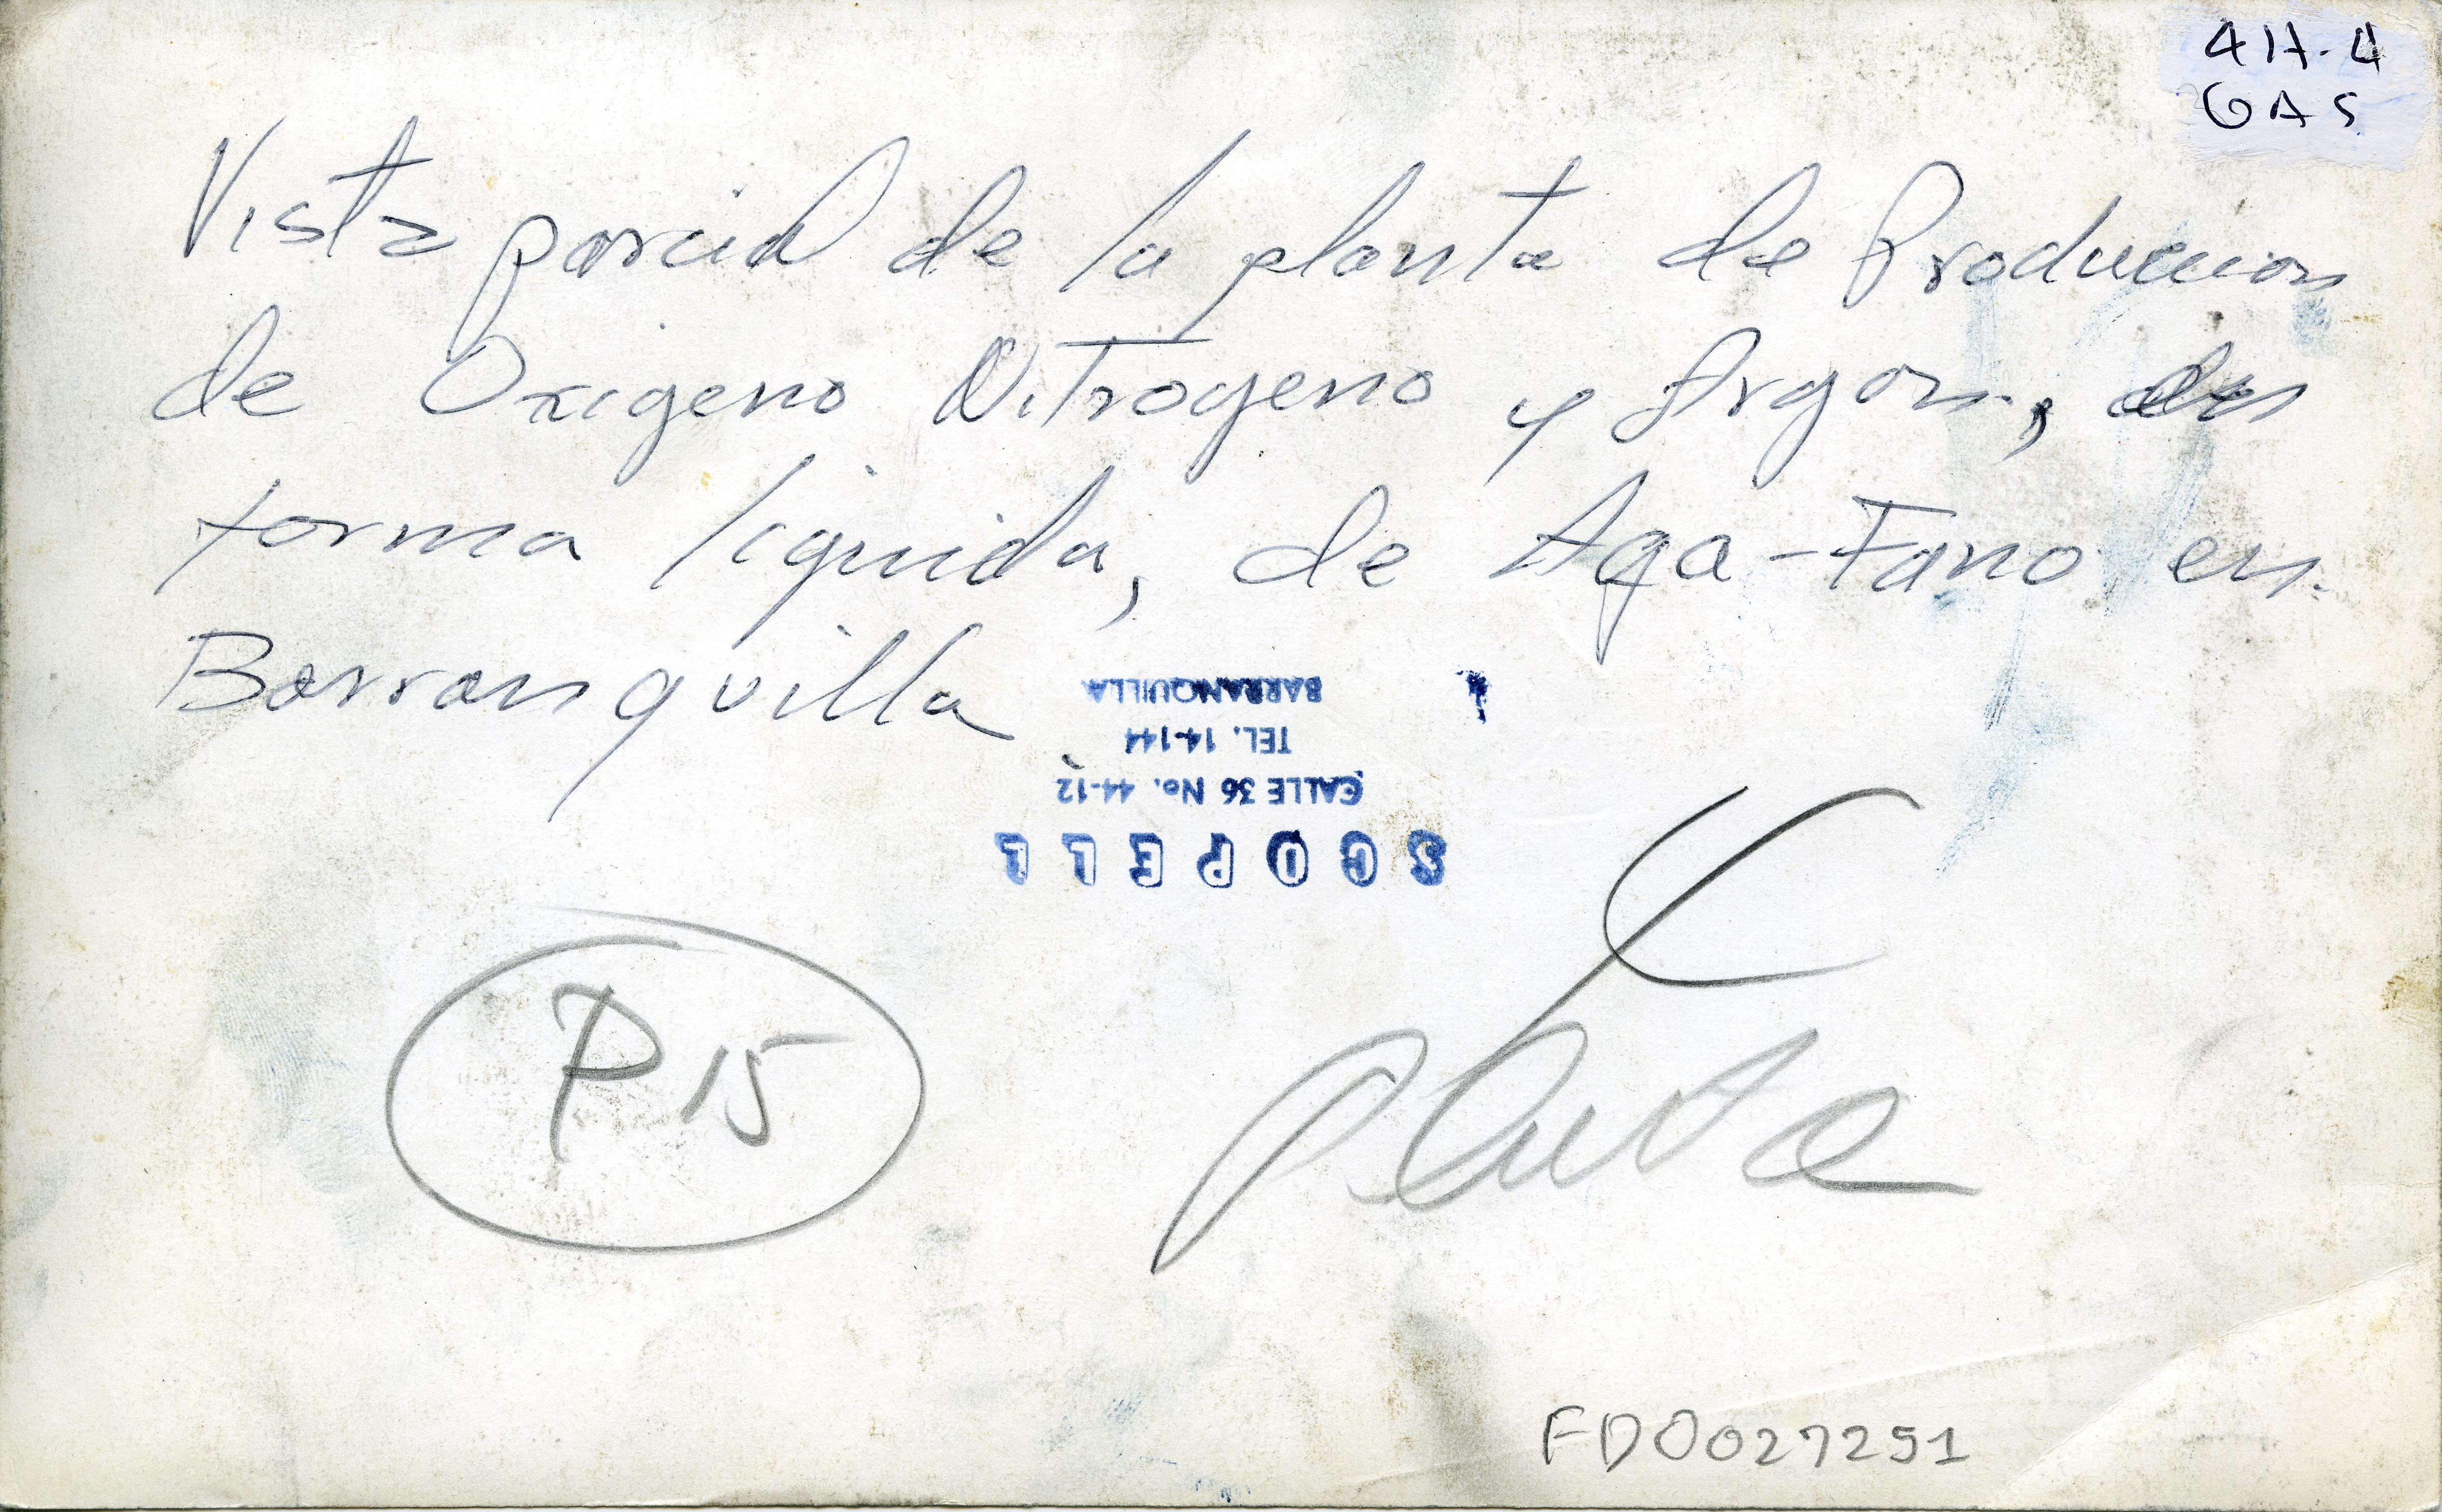 4H-4
GAS
Vista parcial de la planta de Produccion
de Oxigeno Nitrogeno y Argon, en
forma liquida, de Aga-Fano en
Barranquilla.
SCOPELL
CALLE 36 No. 44-12
TEL. 14-144
BARRANQUILLA
P 15
FD0027251